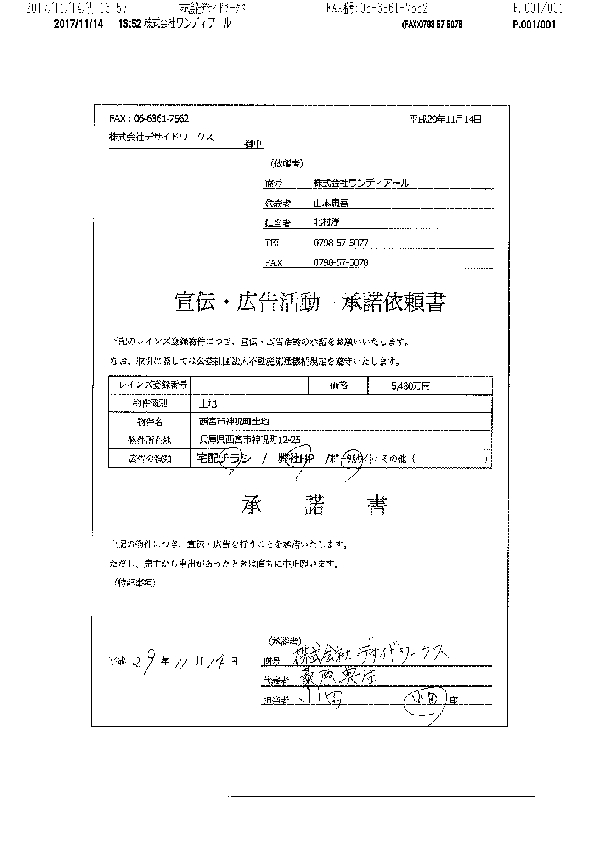 2017/11/14 13:52 株式会社ワンディアール (FAX)0798 57 5078 P.001/001
FAX：06-6361-7562 平成29年11月14日
株式会社デサイドワークス 御中
(依頼者)
商号 株式会社ワンディアール
代表者
担当者
TEL 0798-57-5077
FAX 0798-57-5078
宣伝・広告活動 承諾依頼書
下記のレインズ登録物件につき、宣伝・広告活動の承諾をお願いいたします。
なお、取引に際しては公益社団法人不動産流通機構規定を遵守いたします。
レインズ登録番号 価格 5,480万円
物件種別 土地
物件名 西宮市神呪町土地
物件所在地 兵庫県西宮市神呪町12-25
広告の種類 宅配チラシ / 弊社HP / その他 ( )
承 諾 書
上記の物件につき、宣伝・広告を行うことを承諾いたします。
ただし、売主から申出があったときは直ちに中止願います。
(特記事項)
(承諾者)
平成 29年 11月 14日
商号 株式会社デサイドワークス
代表者
担当者